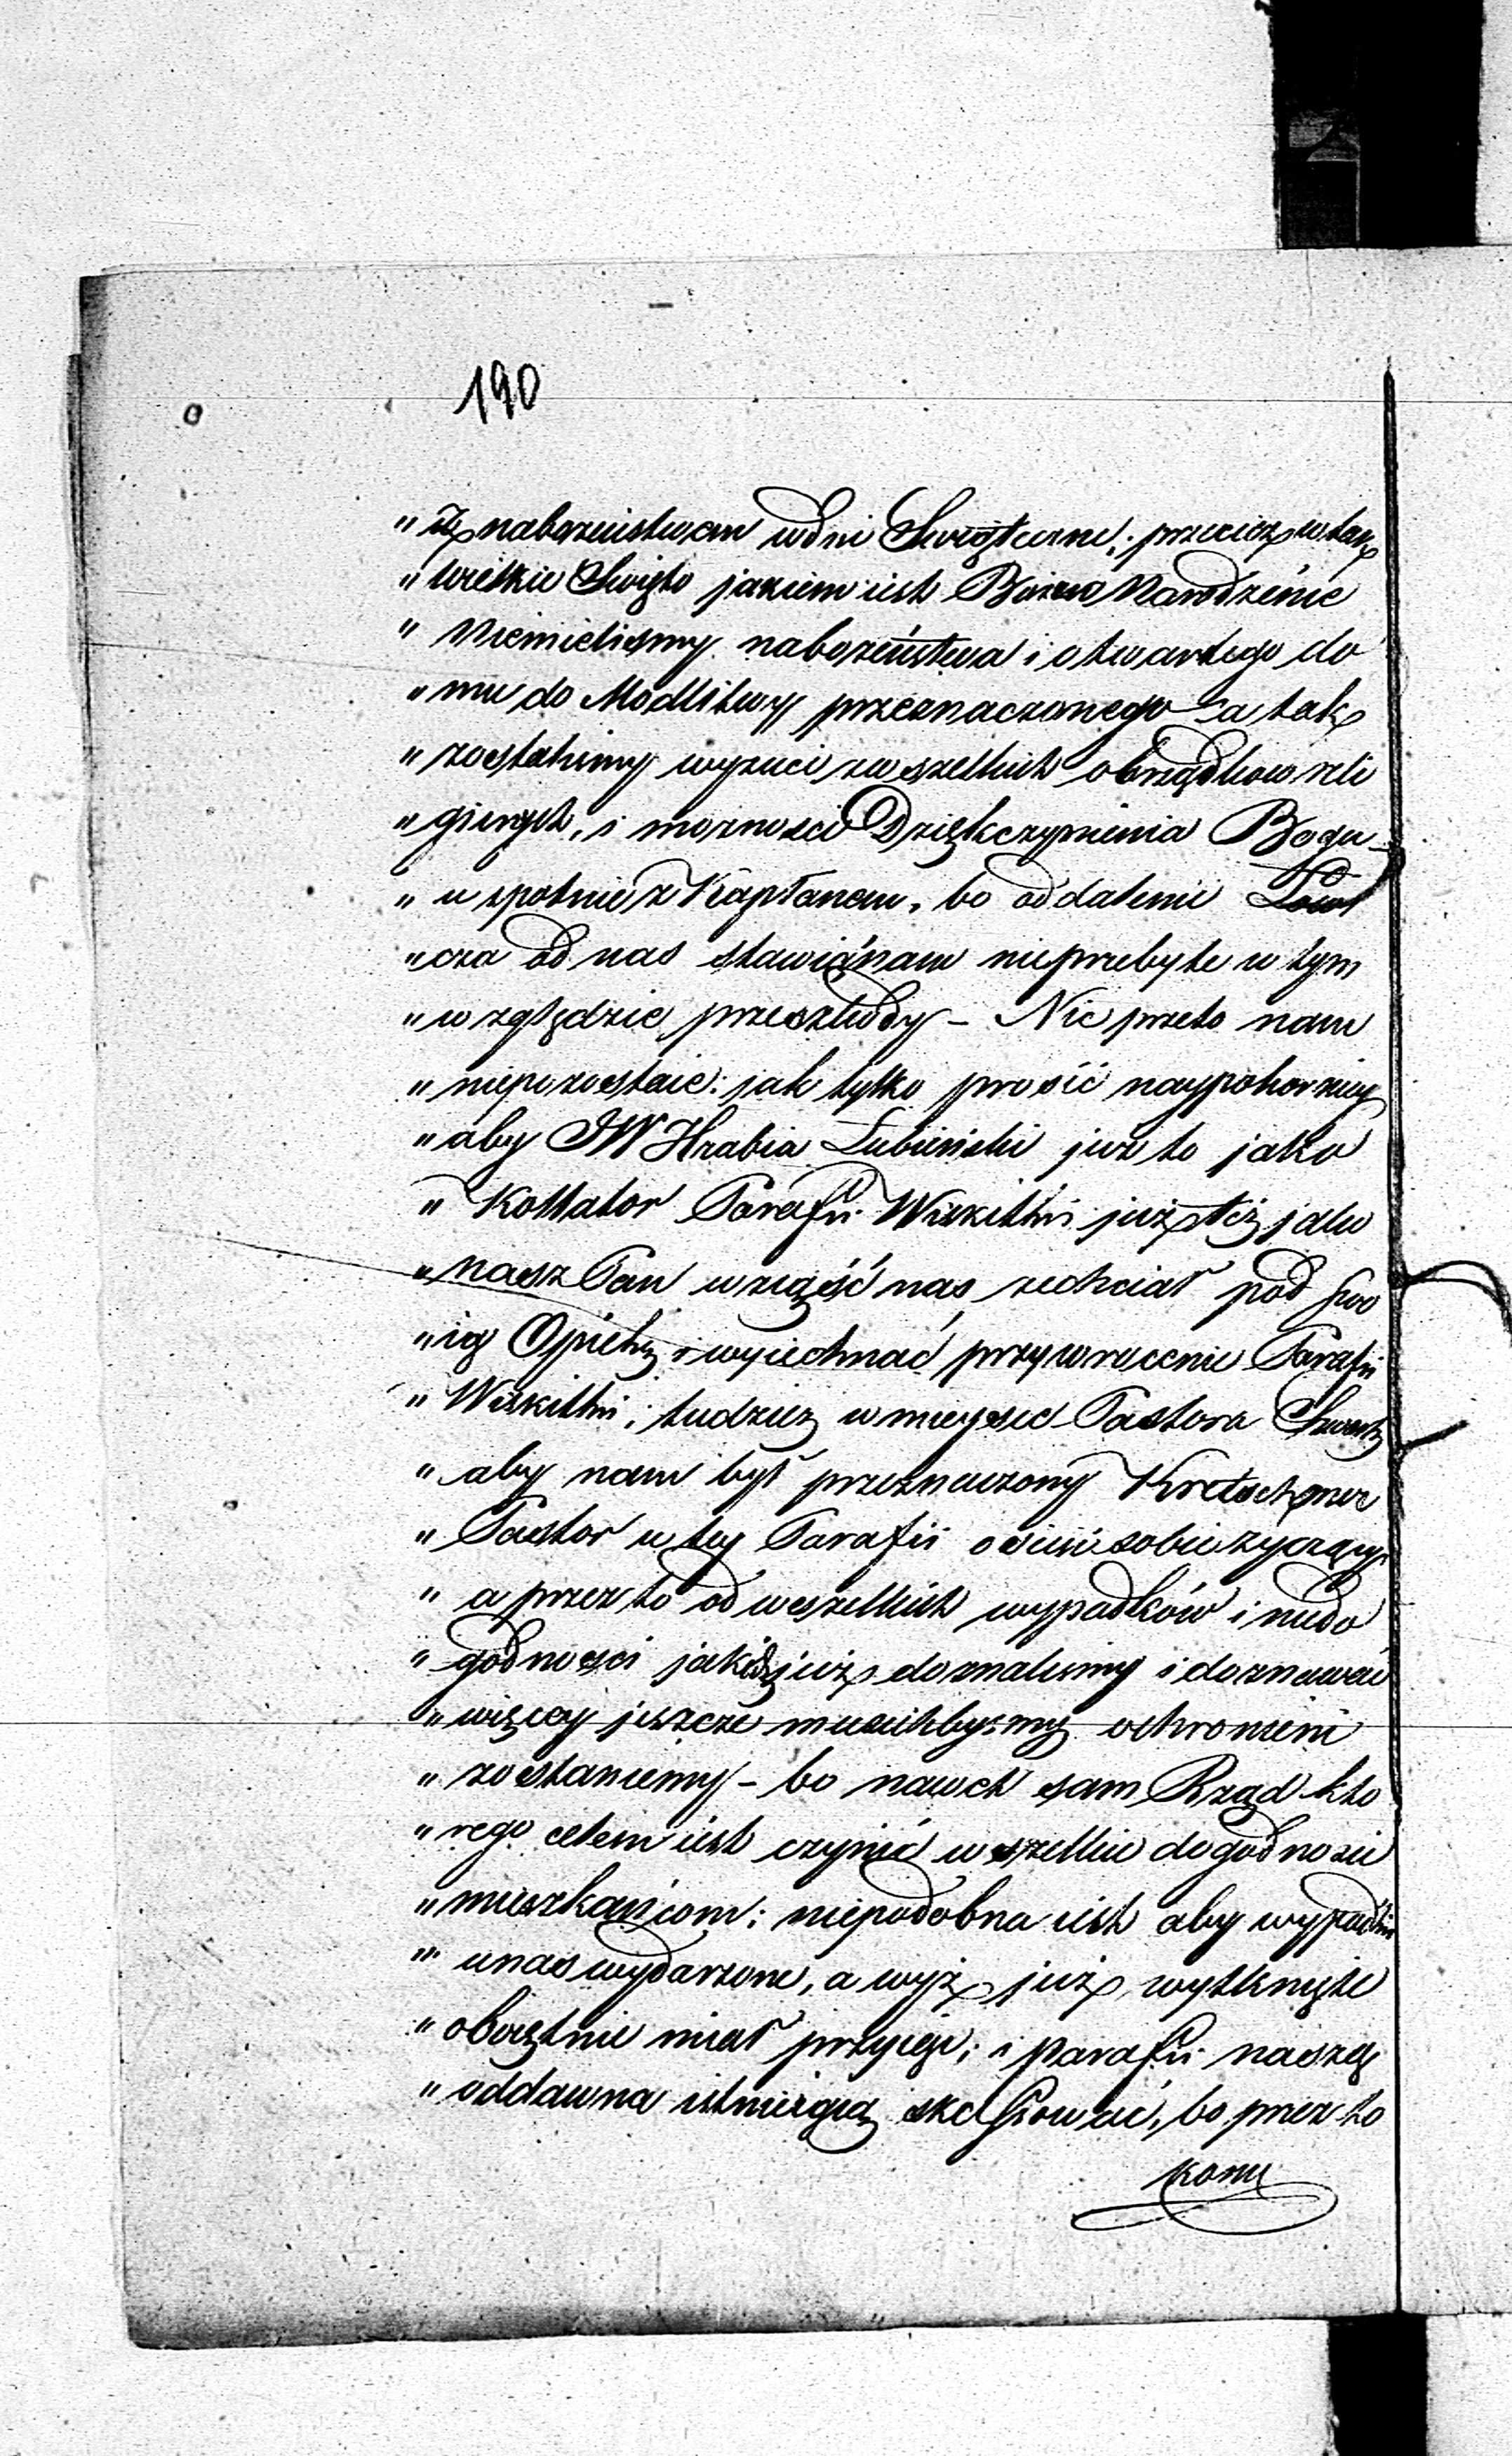 190
" iż nabożeństwem w dni Swiąteczne; przecież w tak
" wielkie Swięto jakiem iest Bożego Narodzenie
" Niemieliśmy nabożeństwa i otwartego do
" mu do Modlitwy przeznaczonego – a tak
" zostaliśmy wyzuci ze wszelkich obrządkow reli
" giinych, i możności Dziękczynienia Bogu
" wspolnie z Kapłanem, bo oddalenie Łowi
" cza od nas stawia nam nieprzebyte w tym
" względzie przeszkody – Nic przeto nam
" niepozostaie: jak tylko prosić naypokorniey
" aby JW Hrabia Łubieński już to jako
" Kollator Parafii Wiskitki już też jako
" nasz Pan wziąść nas zechciał pod Swo
" ią Opiekę i wyiednać przywrocenie Parafii
" Wiskitki; tudzież w mieysce Pastora
" aby nam był przeznaczony Kretschmer
" Pastor w tey Parafii osieść sobie życzący
" a przez to od wszelkich wypadków i niedo
" godności jakich już doznaliśmy i doznawać
" więcey jeszcze musielibyśmy ochronieni
" zostaniemy – bo nawet sam Rząd kto
" rego celem iest czynić wszelkie dogodności
" mieszkańcom; niepodobna iest aby wypadki
" u nas wydarzone, a wyż już wytknięte
" oboiętnie miał przyiąć; i Parafii naszey
" oddawna istnieiącą skassować, bo przez to
komu